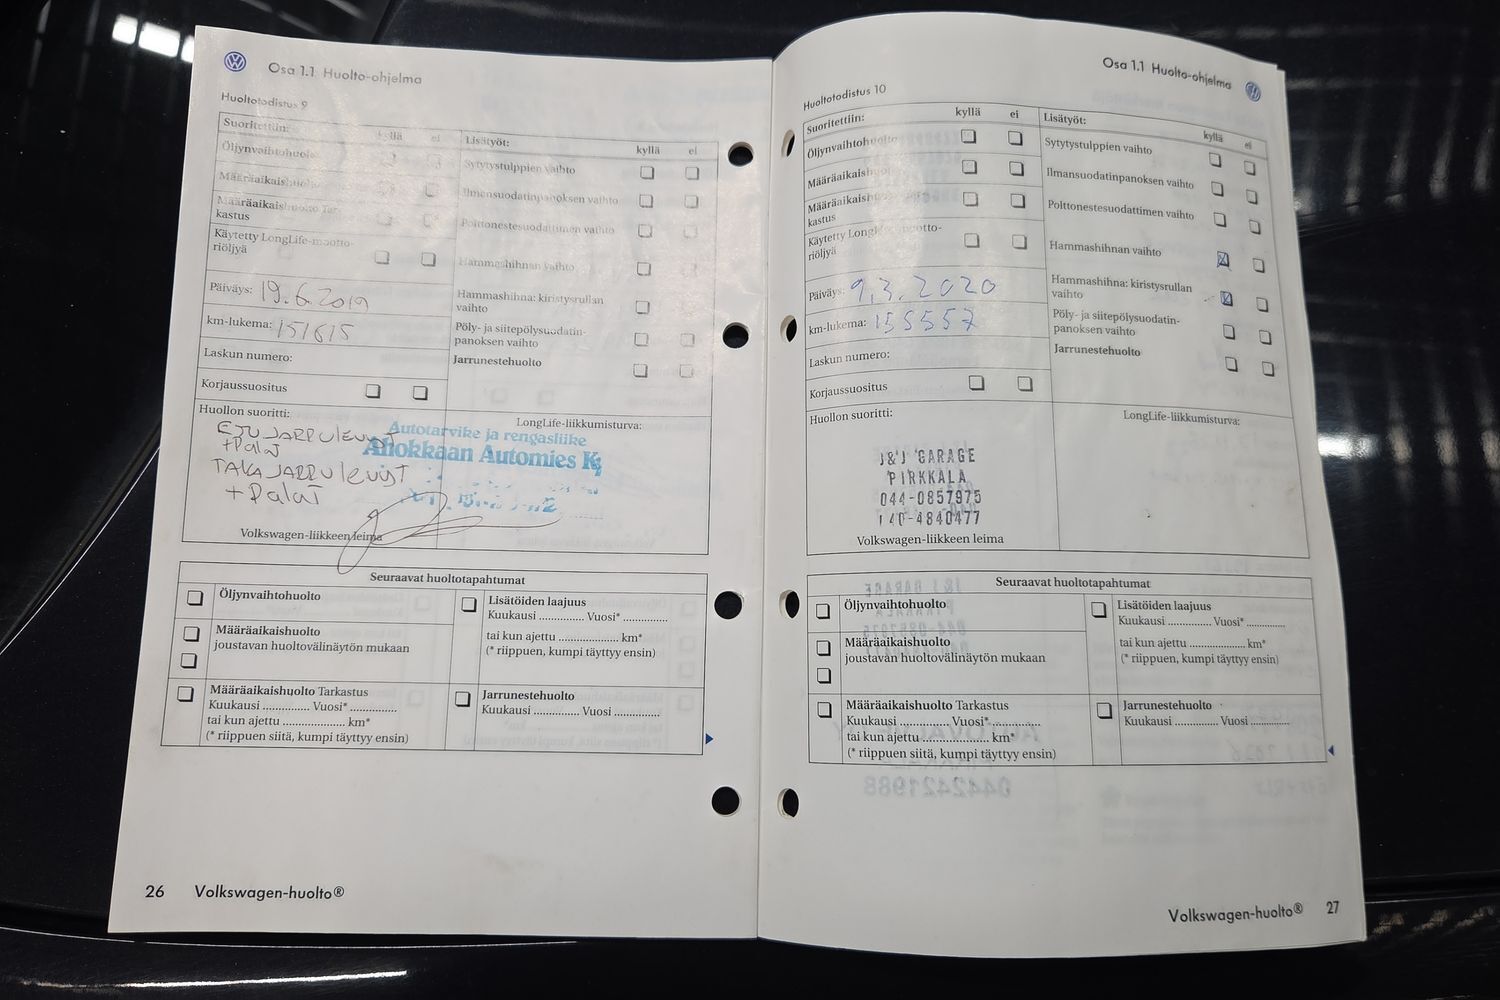 Osa 1.1 Huolto-ohjelma
Huoltotodistus 9
Suoritettiin: kyllä ei
Öljynvaihtohuolto
Määräaikaishuolto
Määräaikaishuolto Tar-
kastus
Käytetty LongLife-mootto-
riöljyä
Päiväys: 19.6.2019
km-lukema: 151615
Laskun numero:
Korjaussuositus
Lisätyöt: kyllä ei
Sytytystulppien vaihto
Ilmansuodatinpanoksen vaihto
Polttonestesuodattimen vaihto
Hammashihnan vaihto
Hammashihna: kiristysrullan
vaihto
Pöly- ja siitepölysuodatin-
panoksen vaihto
Jarrunestehuolto
Huollon suoritti:
LongLife-liikkumisturva:
ETUJARRULEVYT
+Palat
TAKAJARRULEVYT
+Palat
Autotarvike ja rengasliike
Ahokkaan Automies Ky
Volkswagen-liikkeen leima
Seuraavat huoltotapahtumat
Öljynvaihtohuolto
Määräaikaishuolto
joustavan huoltovälinäytön mukaan
Määräaikaishuolto Tarkastus
Kuukausi ............... Vuosi* ...............
tai kun ajettu .................... km*
(* riippuen siitä, kumpi täyttyy ensin)
Lisätöiden laajuus
Kuukausi ............... Vuosi* ...............
tai kun ajettu .................... km*
(* riippuen, kumpi täyttyy ensin)
Jarrunestehuolto
Kuukausi ............... Vuosi ...............
26 Volkswagen-huolto®
Osa 1.1 Huolto-ohjelma
Huoltotodistus 10
Suoritettiin: kyllä ei
Öljynvaihtohuolto
Määräaikaishuolto
Määräaikaishuolto
kastus
Käytetty LongLife-mootto-
riöljyä
Päiväys: 9.3.2020
km-lukema: 155557
Laskun numero:
Korjaussuositus
Lisätyöt: kyllä ei
Sytytystulppien vaihto
Ilmansuodatinpanoksen vaihto
Polttonestesuodattimen vaihto
Hammashihnan vaihto
Hammashihna: kiristysrullan
vaihto
Pöly- ja siitepölysuodatin-
panoksen vaihto
Jarrunestehuolto
Huollon suoritti:
LongLife-liikkumisturva:
J&J GARAGE
PIRKKALA
044-0857975
040-4840477
Volkswagen-liikkeen leima
Seuraavat huoltotapahtumat
Öljynvaihtohuolto
Määräaikaishuolto
joustavan huoltovälinäytön mukaan
Määräaikaishuolto Tarkastus
Kuukausi ............... Vuosi* ...............
tai kun ajettu .................... km*
(* riippuen siitä, kumpi täyttyy ensin)
Lisätöiden laajuus
Kuukausi ............... Vuosi* ...............
tai kun ajettu .................... km*
(* riippuen, kumpi täyttyy ensin)
Jarrunestehuolto
Kuukausi ............... Vuosi ...............
Volkswagen-huolto® 27